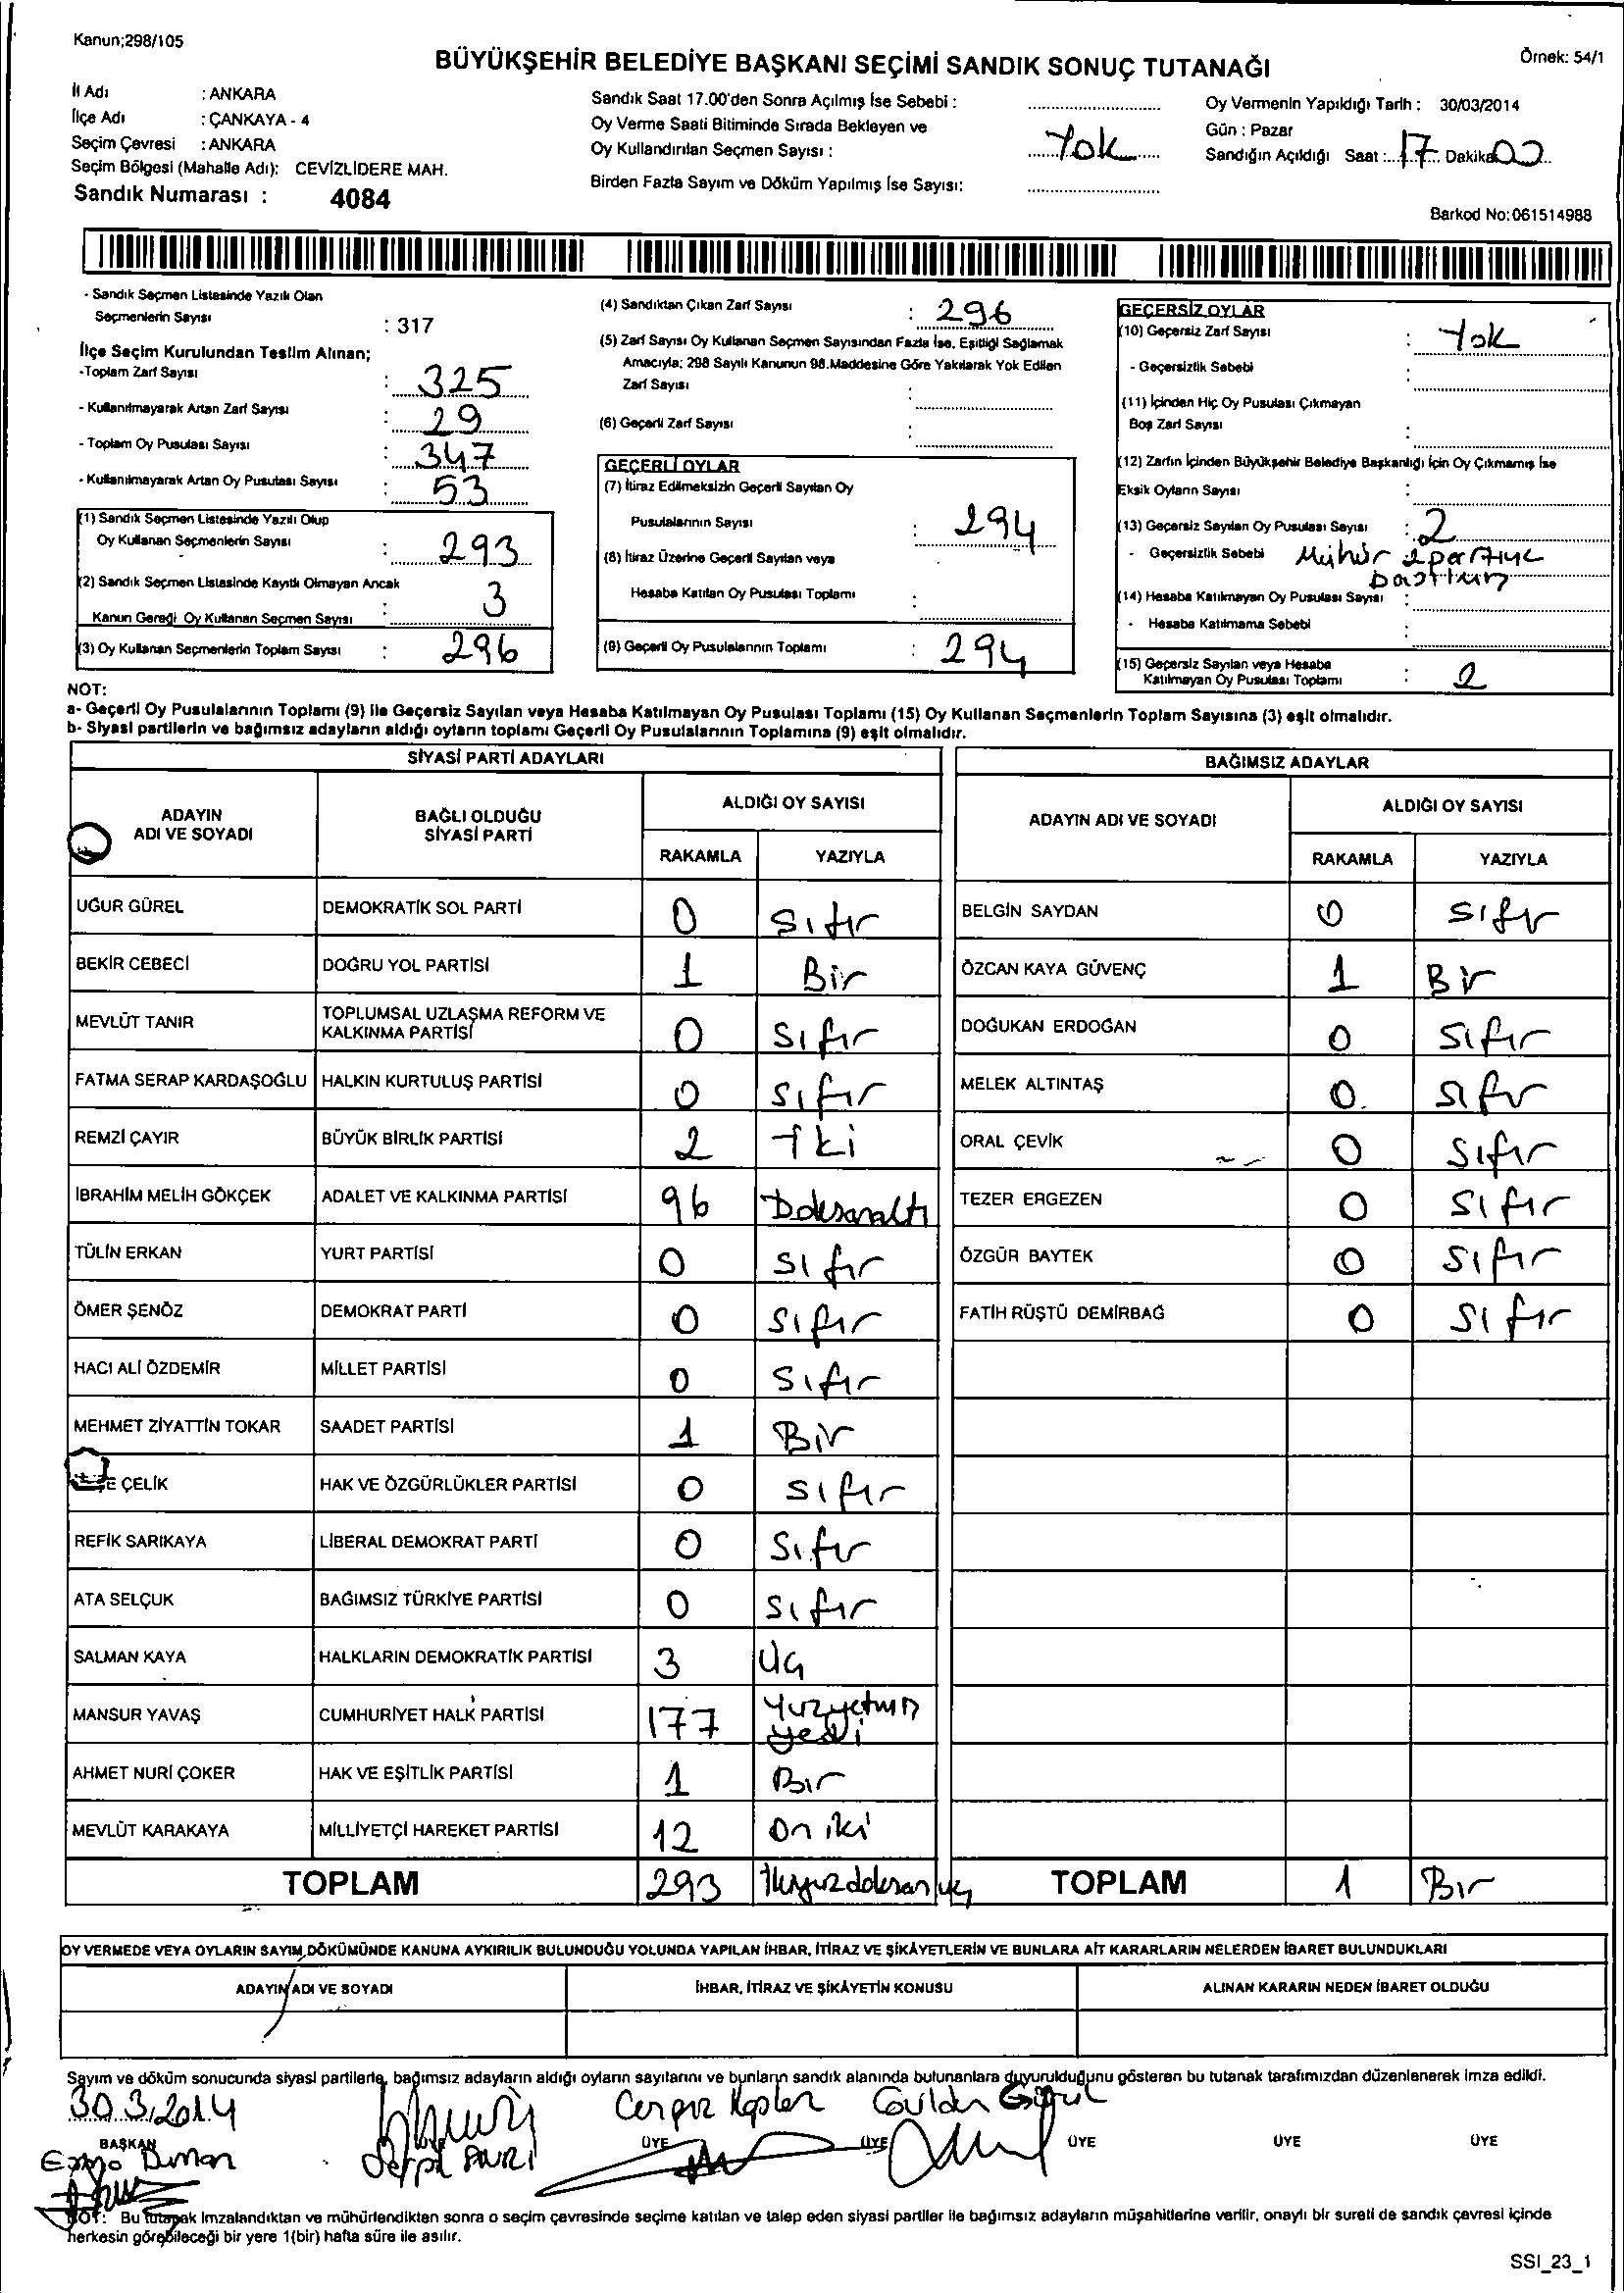 Kanun;298/105
BÜYÜKŞEHİR BELEDİYE BAŞKANI SEÇİMİ SANDIK SONUÇ TUTANAĞI
Örnek: 54/1
İl Adı : ANKARA
İlçe Adı : ÇANKAYA - 4
Seçim Çevresi : ANKARA
Seçim Bölgesi (Mahalle Adı): CEVİZLİDERE MAH.
Sandık Numarası : 4084
Sandık Saat 17.00'den Sonra Açılmış İse Sebebi :
Oy Verme Saati Bitiminde Sırada Bekleyen ve
Oy Kullandırılan Seçmen Sayısı : Yok
Birden Fazla Sayım ve Döküm Yapılmış İse Sayısı:
Oy Vermenin Yapıldığı Tarih : 30/03/2014
Gün : Pazar
Sandığın Açıldığı Saat : 17 Dakika 00
Barkod No:061514988
- Sandık Seçmen Listesinde Yazılı Olan
Seçmenlerin Sayısı : 317
İlçe Seçim Kurulundan Teslim Alınan;
-Toplam Zarf Sayısı : 325
- Kullanılmayarak Artan Zarf Sayısı : 29
- Toplam Oy Pusulası Sayısı : 347
- Kullanılmayarak Artan Oy Pusulası Sayısı : 53
(1) Sandık Seçmen Listesinde Yazılı Olup
Oy Kullanan Seçmenlerin Sayısı : 293
(2) Sandık Seçmen Listesinde Kayıtlı Olmayan Ancak
Kanun Gereği Oy Kullanan Seçmen Sayısı : 3
(3) Oy Kullanan Seçmenlerin Toplam Sayısı : 296
(4) Sandıktan Çıkan Zarf Sayısı : 296
(5) Zarf Sayısı Oy Kullanan Seçmen Sayısından Fazla İse, Eşitliği Sağlamak
Amacıyla; 298 Sayılı Kanunun 98.Maddesine Göre Yakılarak Yok Edilen
Zarf Sayısı :
(6) Geçerli Zarf Sayısı :
GEÇERLİ OYLAR
(7) İtiraz Edilmeksizin Geçerli Sayılan Oy
Pusulalarının Sayısı : 294
(8) İtiraz Üzerine Geçerli Sayılan veya
Hesaba Katılan Oy Pusulası Toplamı :
(9) Geçerli Oy Pusulalarının Toplamı : 294
GEÇERSİZ OYLAR
(10) Geçersiz Zarf Sayısı : Yok
- Geçersizlik Sebebi :
(11) İçinden Hiç Oy Pusulası Çıkmayan
Boş Zarf Sayısı :
(12) Zarfın İçinden Büyükşehir Belediye Başkanlığı İçin Oy Çıkmamış İse
Eksik Oyların Sayısı :
(13) Geçersiz Sayılan Oy Pusulası Sayısı : 2
- Geçersizlik Sebebi Mühür 2 partiye
(14) Hesaba Katılmayan Oy Pusulası Sayısı :
- Hesaba Katılmama Sebebi :
(15) Geçersiz Sayılan veya Hesaba
Katılmayan Oy Pusulası Toplamı : 2
NOT:
a- Geçerli Oy Pusulalarının Toplamı (9) ile Geçersiz Sayılan veya Hesaba Katılmayan Oy Pusulası Toplamı (15) Oy Kullanan Seçmenlerin Toplam Sayısına (3) eşit olmalıdır.
b- Siyasi partilerin ve bağımsız adayların aldığı oyların toplamı Geçerli Oy Pusulalarının Toplamına (9) eşit olmalıdır.
SİYASİ PARTİ ADAYLARI
ADAYIN ADI VE SOYADI BAĞLI OLDUĞU SİYASİ PARTİ ALDIĞI OY SAYISI
RAKAMLA YAZIYLA
UĞUR GÜREL DEMOKRATİK SOL PARTİ 0 Sıfır
BEKİR CEBECİ DOĞRU YOL PARTİSİ 1 Bir
MEVLÜT TANIR TOPLUMSAL UZLAŞMA REFORM VE KALKINMA PARTİSİ 0 Sıfır
FATMA SERAP KARDAŞOĞLU HALKIN KURTULUŞ PARTİSİ 0 Sıfır
REMZİ ÇAYIR BÜYÜK BİRLİK PARTİSİ 2 İki
İBRAHİM MELİH GÖKÇEK ADALET VE KALKINMA PARTİSİ 96 Doksanaltı
TÜLİN ERKAN YURT PARTİSİ 0 Sıfır
ÖMER ŞENÖZ DEMOKRAT PARTİ 0 Sıfır
HACI ALİ ÖZDEMİR MİLLET PARTİSİ 0 Sıfır
MEHMET ZİYATTİN TOKAR SAADET PARTİSİ 1 Bir
ÇELİK HAK VE ÖZGÜRLÜKLER PARTİSİ 0 Sıfır
REFİK SARIKAYA LİBERAL DEMOKRAT PARTİ 0 Sıfır
ATA SELÇUK BAĞIMSIZ TÜRKİYE PARTİSİ 0 Sıfır
SALMAN KAYA HALKLARIN DEMOKRATİK PARTİSİ 3 Üç
MANSUR YAVAŞ CUMHURİYET HALK PARTİSİ 177 Yüzyetmiş yedi
AHMET NURİ ÇOKER HAK VE EŞİTLİK PARTİSİ 1 Bir
MEVLÜT KARAKAYA MİLLİYETÇİ HAREKET PARTİSİ 12 On iki
TOPLAM 293 İkiyüzdoksan üç
BAĞIMSIZ ADAYLAR
ADAYIN ADI VE SOYADI ALDIĞI OY SAYISI
RAKAMLA YAZIYLA
BELGİN SAYDAN 0 Sıfır
ÖZCAN KAYA GÜVENÇ 1 Bir
DOĞUKAN ERDOĞAN 0 Sıfır
MELEK ALTINTAŞ 0 Sıfır
ORAL ÇEVİK 0 Sıfır
TEZER ERGEZEN 0 Sıfır
ÖZGÜR BAYTEK 0 Sıfır
FATİH RÜŞTÜ DEMİRBAĞ 0 Sıfır
TOPLAM 1 Bir
OY VERMEDE VEYA OYLARIN SAYIM,DÖKÜMÜNDE KANUNA AYKIRILIK BULUNDUĞU YOLUNDA YAPILAN İHBAR, İTİRAZ VE ŞİKÂYETLERİN VE BUNLARA AİT KARARLARIN NELERDEN İBARET BULUNDUKLARI
ADAYIN ADI VE SOYADI İHBAR, İTİRAZ VE ŞİKÂYETİN KONUSU ALINAN KARARIN NEDEN İBARET OLDUĞU
Sayım ve döküm sonucunda siyasi partilerle, bağımsız adayların aldığı oyların sayılarını ve bunların sandık alanında bulunanlara duyurulduğunu gösteren bu tutanak tarafımızdan düzenlenerek imza edildi.
30.3.2014
BAŞKAN ÜYE ÜYE ÜYE ÜYE ÜYE
NOT: Bu tutanak imzalandıktan ve mühürlendikten sonra o seçim çevresinde seçime katılan ve talep eden siyasi partiler ile bağımsız adayların müşahitlerine verilir, onaylı bir sureti de sandık çevresi içinde
herkesin görebileceği bir yere 1(bir) hafta süre ile asılır.
SSI_23_1